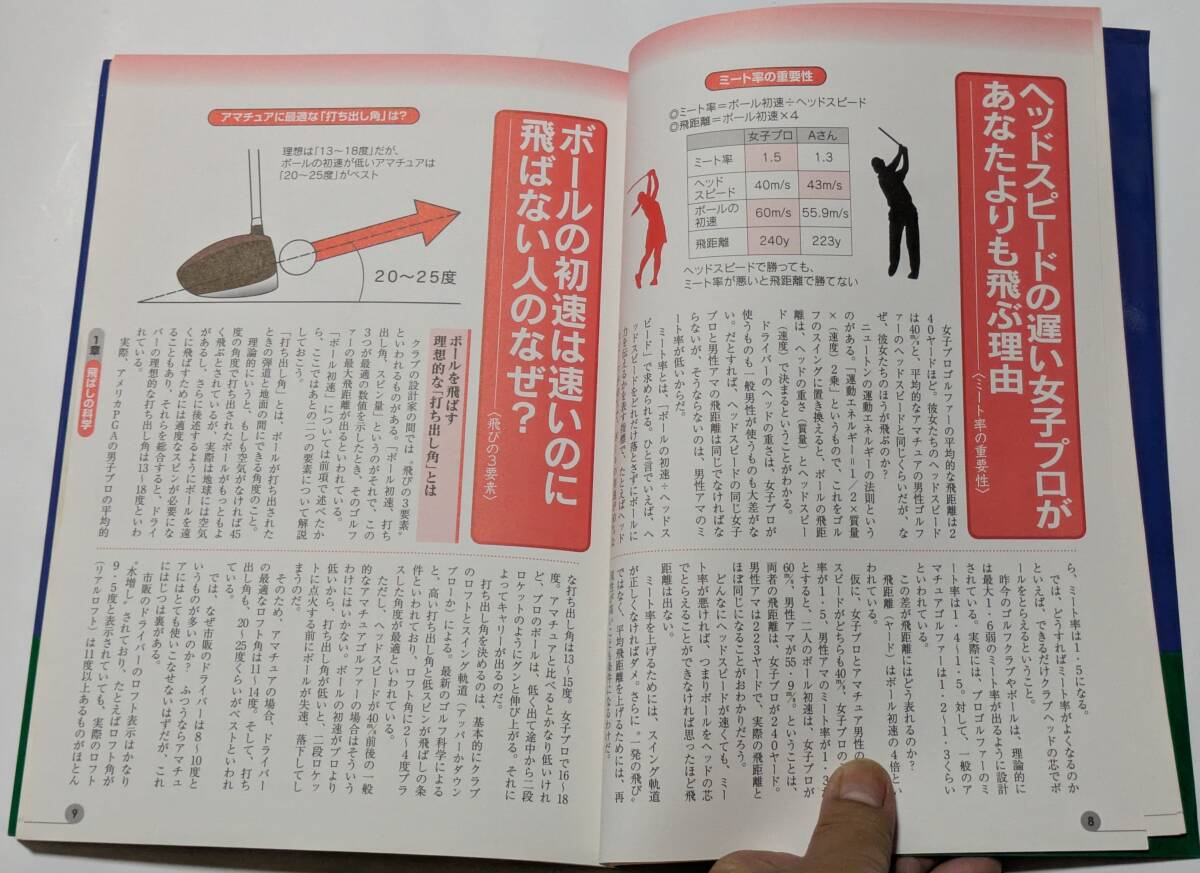 ヘッドスピードの遅い女子プロが
あなたよりも飛ぶ理由
〈ミート率の重要性〉
ミート率の重要性
◎ミート率＝ボール初速÷ヘッドスピード
◎飛距離＝ボール初速×4
女子プロ Aさん
ミート率 1.5 1.3
ヘッド
スピード 40m/s 43m/s
ボールの
初速 60m/s 55.9m/s
飛距離 240y 223y
ヘッドスピードで勝っても、
ミート率が悪いと飛距離で勝てない
女子プロゴルファーの平均的な飛距離は2
40ヤードほど。彼女たちのヘッドスピード
は40㎧と、平均的なアマチュアの男性ゴルフ
ァーのヘッドスピードと同じくらいだが、な
ぜ、彼女たちのほうが飛ぶのか？
ニュートンの運動エネルギーの法則という
のがある。「運動エネルギー＝1／2×質量
×（速度 2乗）」というもので、これをゴル
フのスイングに置き換えると、ボールの飛距
離は、ヘッドの重さ（質量）とヘッドスピー
ド（速度）で決まるということがわかる。
ドライバーのヘッドの重さは、女子プロが
使うものも一般男性が使うものも大差がな
い。だとすれば、ヘッドスピードの同じ女子
プロと男性アマの飛距離は同じでなければな
らないが、そうならないのは、男性アマのミ
ート率が低いからだ。
ミート率とは、「ボールの初速÷ヘッドス
ピード」で求められる。ひと言でいえば、ヘ
ッドスピードをどれだけ落とさずにボールに
を表す指標で、たとえばヘッド
ら、ミート率は1・5になる。
では、どうすればミート率がよくなるのか
といえば、できるだけクラブヘッドの芯でボ
ールをとらえるということ。
昨今のゴルフクラブやボールは、理論的に
は最大1・6弱のミート率が出るように設計
されている。実際には、プロゴルファーのミ
ート率は1・4〜1・5。対して、一般のア
マチュアゴルファーは1・2〜1・3くらい
といわれている。
この差が飛距離にはどう表れるのか？
飛距離（ヤード）はボール初速の4倍とい
われている。
仮に、女子プロとアマ男性の
スピードがどちらも40㎧、女子プロの
率が1・5、男性アマのミート率が1・3
とすると、二人のボール初速は、女子プロが
60㎧、男性アマが55・9㎧。ということは、
両者の飛距離は、女子プロが240ヤード。
男性アマは223ヤードで、実際の飛距離と
ほぼ同じになることがおわかりだろう。
どんなにヘッドスピードが速くても、ミー
ト率が悪ければ、つまりボールをヘッドの芯
でとらえることができなければ思ったほど飛
距離は出ない。
ミート率を上げるためには、スイング軌道
が正しくなければダメ。さらに。一発の飛び〟
ではなく、平均飛距離を上げるためには、再
8
ボールの初速は速いのに
飛ばない人のなぜ？
〈飛びの3要素〉
アマチュアに最適な「打ち出し角」は？
理想は「13〜18度」だが、
ボールの初速が低いアマチュアは
「20〜25度」がベスト
20〜25度
ボールを飛ばす
理想的な「打ち出し角」とは
クラブの設計家の間では〝飛びの3要素〟
といわれるものがある。「ボール初速、打ち
出し角、スピン量」というのがそれで、この
3つが最適の数値を示したとき、そのゴルフ
ァーの最大飛距離が出るといわれている。
「ボール初速」については前項で述べたか
ら、ここではあとの二つの要素について解説
しておこう。
「打ち出し角」とは、ボールが打ち出された
ときの弾道と地面の間にできる角度のこと。
理論的にいうと、もしも空気がなければ45
度の角度で打ち出されたボールがもっともよ
く飛ぶとされているが、実際は地球には空気
があるし、さらに後述するようにボールを遠
くに飛ばすためには適度なスピンが必要にな
ることもあり、それらを総合すると、ドライ
バーの理想的な打ち出し角は13〜18度といわ
れている。
実際、アメリカPGAの男子プロの平均的
な打ち出し角は13〜15度。女子プロで16〜18
度。アマチュアと比べるとかなり低いけれ
ど、プロのボールは、低く出て途中から二段
ロケットのようにグンと伸び上がる。それに
よってキャリーが出るのだ。
打ち出し角を決めるのは、基本的にクラブ
のロフトとスイング軌道（アッパーかダウン
ブローか）による。最新のゴルフ科学による
と、高い打ち出し角と低スピンが飛ばしの条
件といわれており、ロフト角に2〜4度プラ
スした角度が最適といわれている。
ただし、ヘッドスピードが40㎧前後の一般
的なアマチュアゴルファーの場合はそういう
わけにはいかない。ボールの初速がプロより
低いから、打ち出し角が低いと、二段ロケッ
トに点火する前にボールが失速、落下してし
まうのだ。
そのため、アマチュアの場合、ドライバー
の最適なロフト角は11〜14度。そして、打ち
出し角も、20〜25度くらいがベストといわれ
ている。
では、なぜ市販のドライバーは8〜10度と
いうものが多いのか？　ふつうならアマチュ
アにはとても使いこなせないはずだが、これ
にはじつは裏がある。
市販のドライバーのロフト表示はかなり
〝水増し〟されており、たとえばロフト角が
9・5度と表示されていても、実際のロフト
（リアルロフト）は11度以上あるものがほとん
1章 飛ばしの科学
9